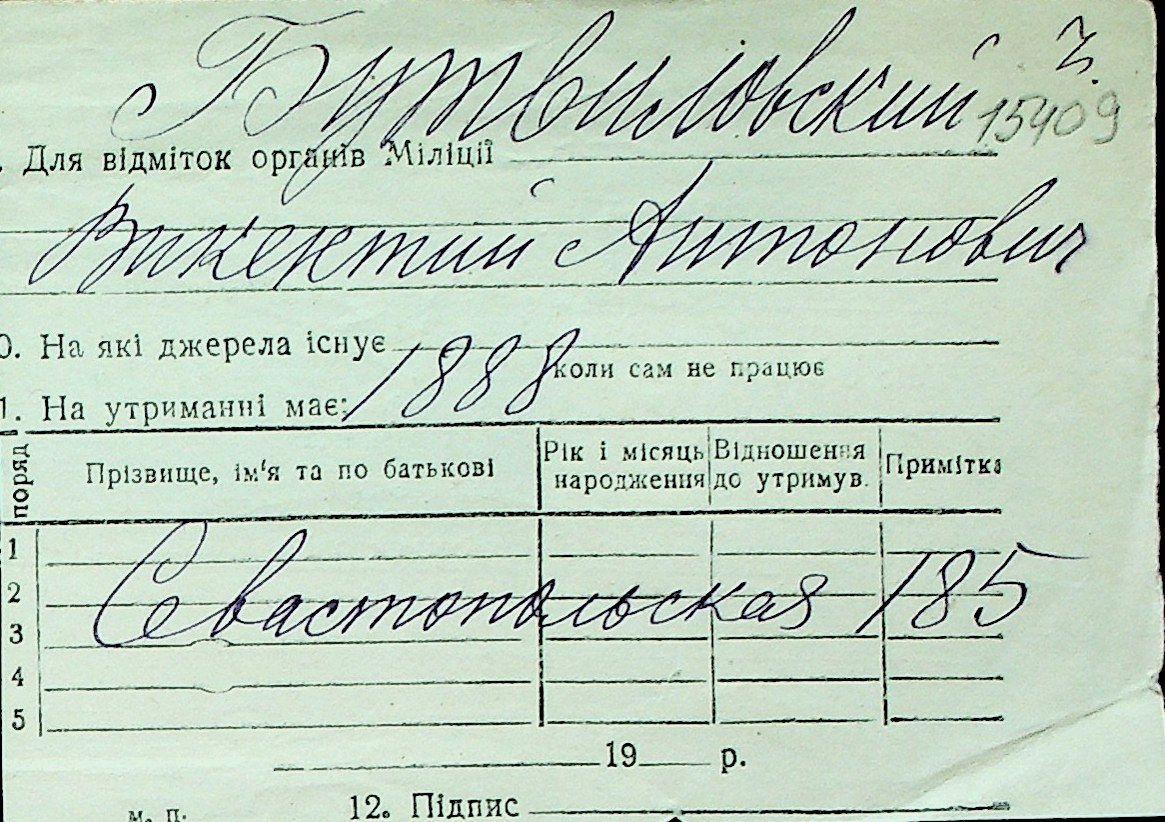 Бутвиловский ч.
15409
. Для відміток органів Міліції
Викентий Антонович
0. На які джерела існує
1888 коли сам не працює
1. На утриманні має:
поряд
Прізвище, ім'я та по батькові
Рік і місяць народження
Відношення до утримув.
Примітка
1
2
Севастопольская 185
3
4
5
19 р.
М. П.
12. Підпис